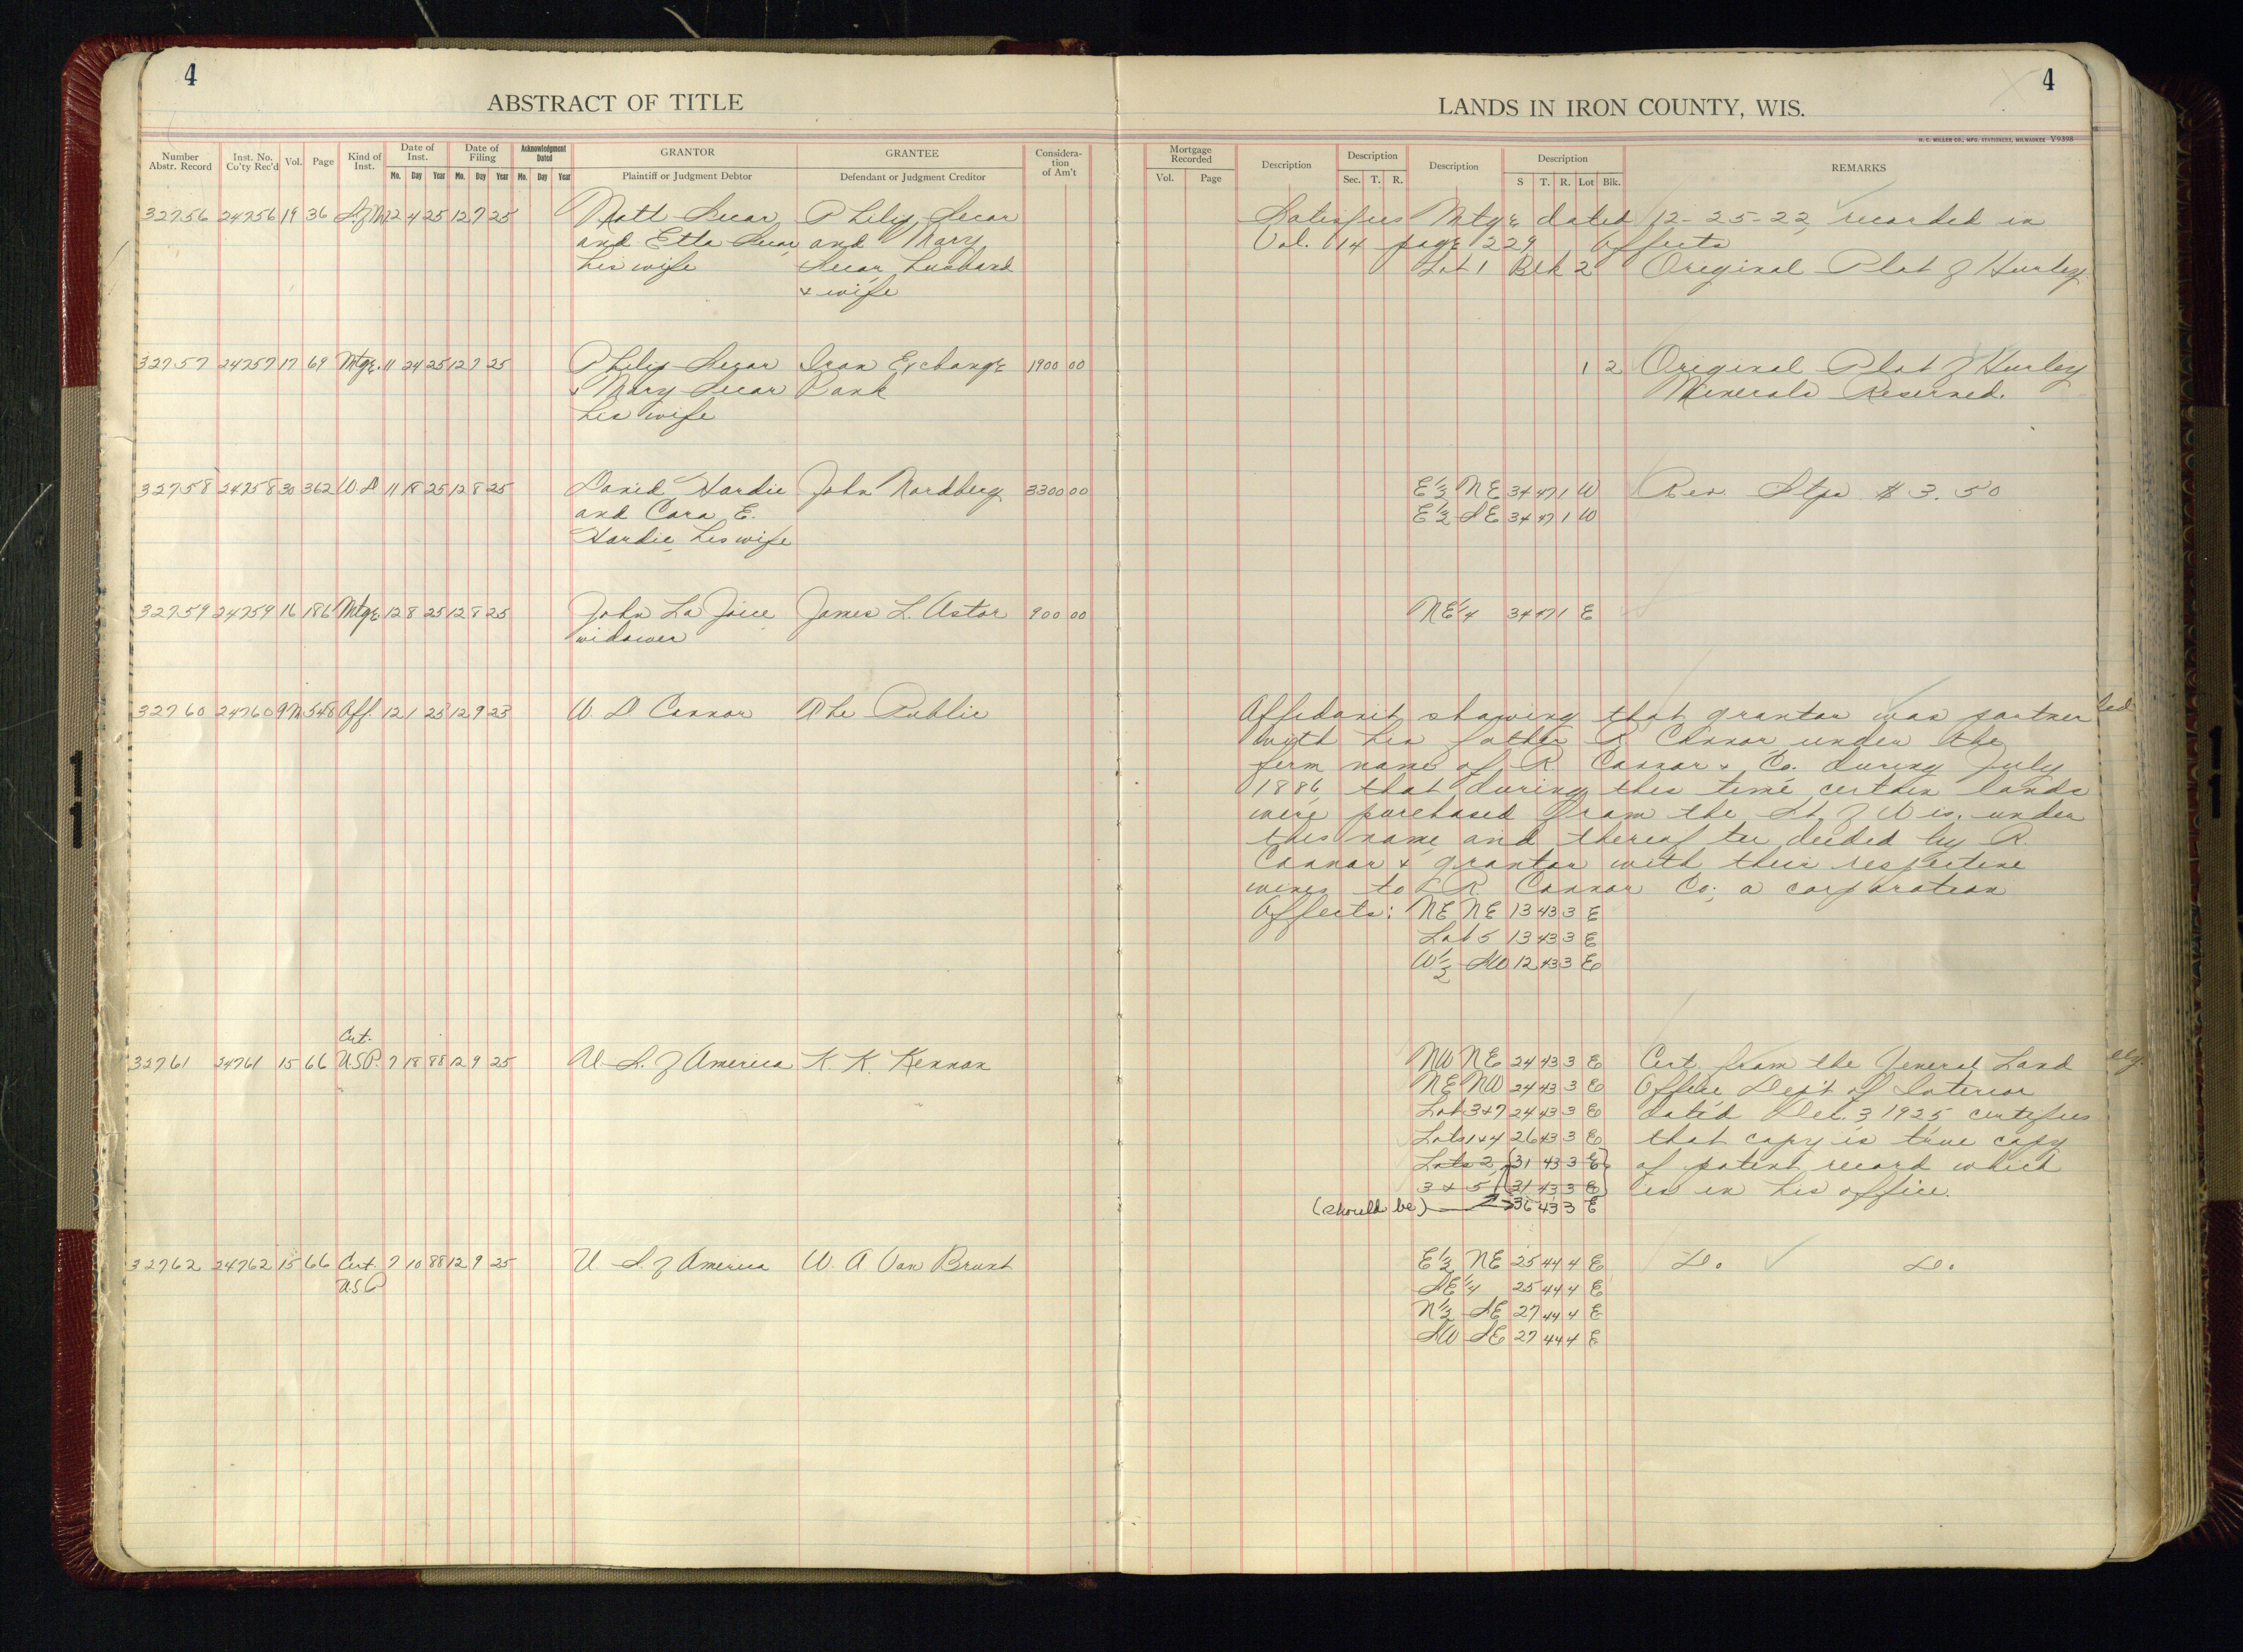 4
4
ABSTRACT OF TITLE
LANDS IN IRON COUNTY, WIS.
H. C. MILLER CO., MFG. STATIONERS, MILWAUKEE V9398
Number Abstr. Record
Inst. No. Co'ty Rec'd
Vol.
Page
Kind of Inst.
Date of Inst.
Mo. Day Year
Date of Filing
Mo. Day Year
Acknowledgment Dated
Mo. Day Year
GRANTOR
Plaintiff or Judgment Debtor
GRANTEE
Defendant or Judgment Creditor
Considera-
tion
of Am't
Mortgage Recorded
Vol. Page
Description
Description
Sec. T. R.
Description
Description
S T. R. Lot Blk.
REMARKS
32756 24756 19 36 S. of M 12 4 25 12 7 25 Matt Secar Philip Secar Satisfies Mtge dated 12-25-22, recorded in
and Etta Secar, and Mary Vol. 14 page 229 Affects
his wife Secar, husband Lot 1 Blk 2 Original Plat of Hurley
& wife
32757 24757 17 69 Mtge. 11 24 25 12 7 25 Philip Secar Iron Exchange 1900 00 1 2 Original Plat of Hurley
& Mary Secar Bank Minerals Reserved.
his wife
32758 24758 30 362 W. D 11 18 25 12 8 25 David Hardie John Nordberg 3300 00 E½ NE 34 47 1 W Rev. Stps $3.50
and Cora E. E½ SE 34 47 1 W
Hardie, his wife
32759 24759 16 186 Mtge 12 8 25 12 8 25 John La Joice James L. Astor 900 00 NE¼ 34 47 1 E
widower
32760 24760 9M 548 Aff. 12 1 25 12 9 25 W. D Connor The Public Affidavit showing that grantor was partner
with his father R. Connor, under the
firm name of R. Connor & Co. during July
1886, that during this time certain lands
were purchased from the St. of Wis. under
this name and thereafter deeded by R.
Connor & grantor with their respective
wives to R. Connor Co., a corporation
Affects: NE NE 13 43 3 E
Lot 5 13 43 3 E
W½ SW 12 43 3 E
Cert.
32761 24761 15 66 U.S.P. 7 18 88 12 9 25 U. S. of America K. K. Kennan NW NE 24 43 3 E Cert. from the General Land
NE NW 24 43 3 E Office Dep't of Interior
Lot 3 & 7 24 43 3 E dated Dec. 3 1925 certifies
Lots 1 & 4 26 43 3 E that copy is true copy
Lots 2, 31 43 3 E of patent record which
3 & 5 31 43 3 E is in his office.
(should be) 36 43 3 E
32762 24762 15 66 Cert. 7 10 88 12 9 25 U S. of America W. A Van Brunt E½ NE 25 44 4 E Do. Do.
U.S.P SE¼ 25 44 4 E
N½ SE 27 44 4 E
SW SE 27 44 4 E